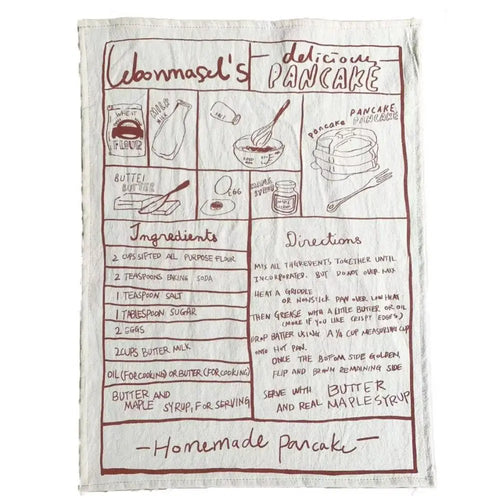 Lebonmasel's
delicious
PANCAKE
WHEAT
FLOUR
MILK
MILK
SALT
PANCAKE
PANCAKE
pancake
BUTTER
BUTTER
EGG
MAPLE
SYRUP
Ingredients
2 CUPS SIFTED ALL PURPOSE FLOUR
2 TEASPOONS BAKING SODA
1 TEASPOON SALT
1 TABLESPOON SUGAR
2 EGGS
2 CUPS BUTTER MILK
OIL (FOR COOKING) OR BUTTER (FOR COOKING)
BUTTER AND
MAPLE SYRUP, FOR SERVING
Directions
MIX ALL INGREDIENTS TOGETHER UNTIL
INCORPORATED. BUT DO NOT OVER MIX
HEAT A GRIDDLE
OR NONSTICK PAN OVER LOW HEAT
THEN GREASE WITH A LITTLE BUTTER OR OIL
(MORE IF YOU LIKE CRISPY EDGES)
DROP BATTER USING A 1/4 CUP MEASURING CUP
ONTO HOT PAN.
ONCE THE BOTTOM SIDE GOLDEN,
FLIP AND BROWN REMAINING SIDE
SERVE WITH BUTTER
AND REAL MAPLE SYRUP
-Homemade Pancake-